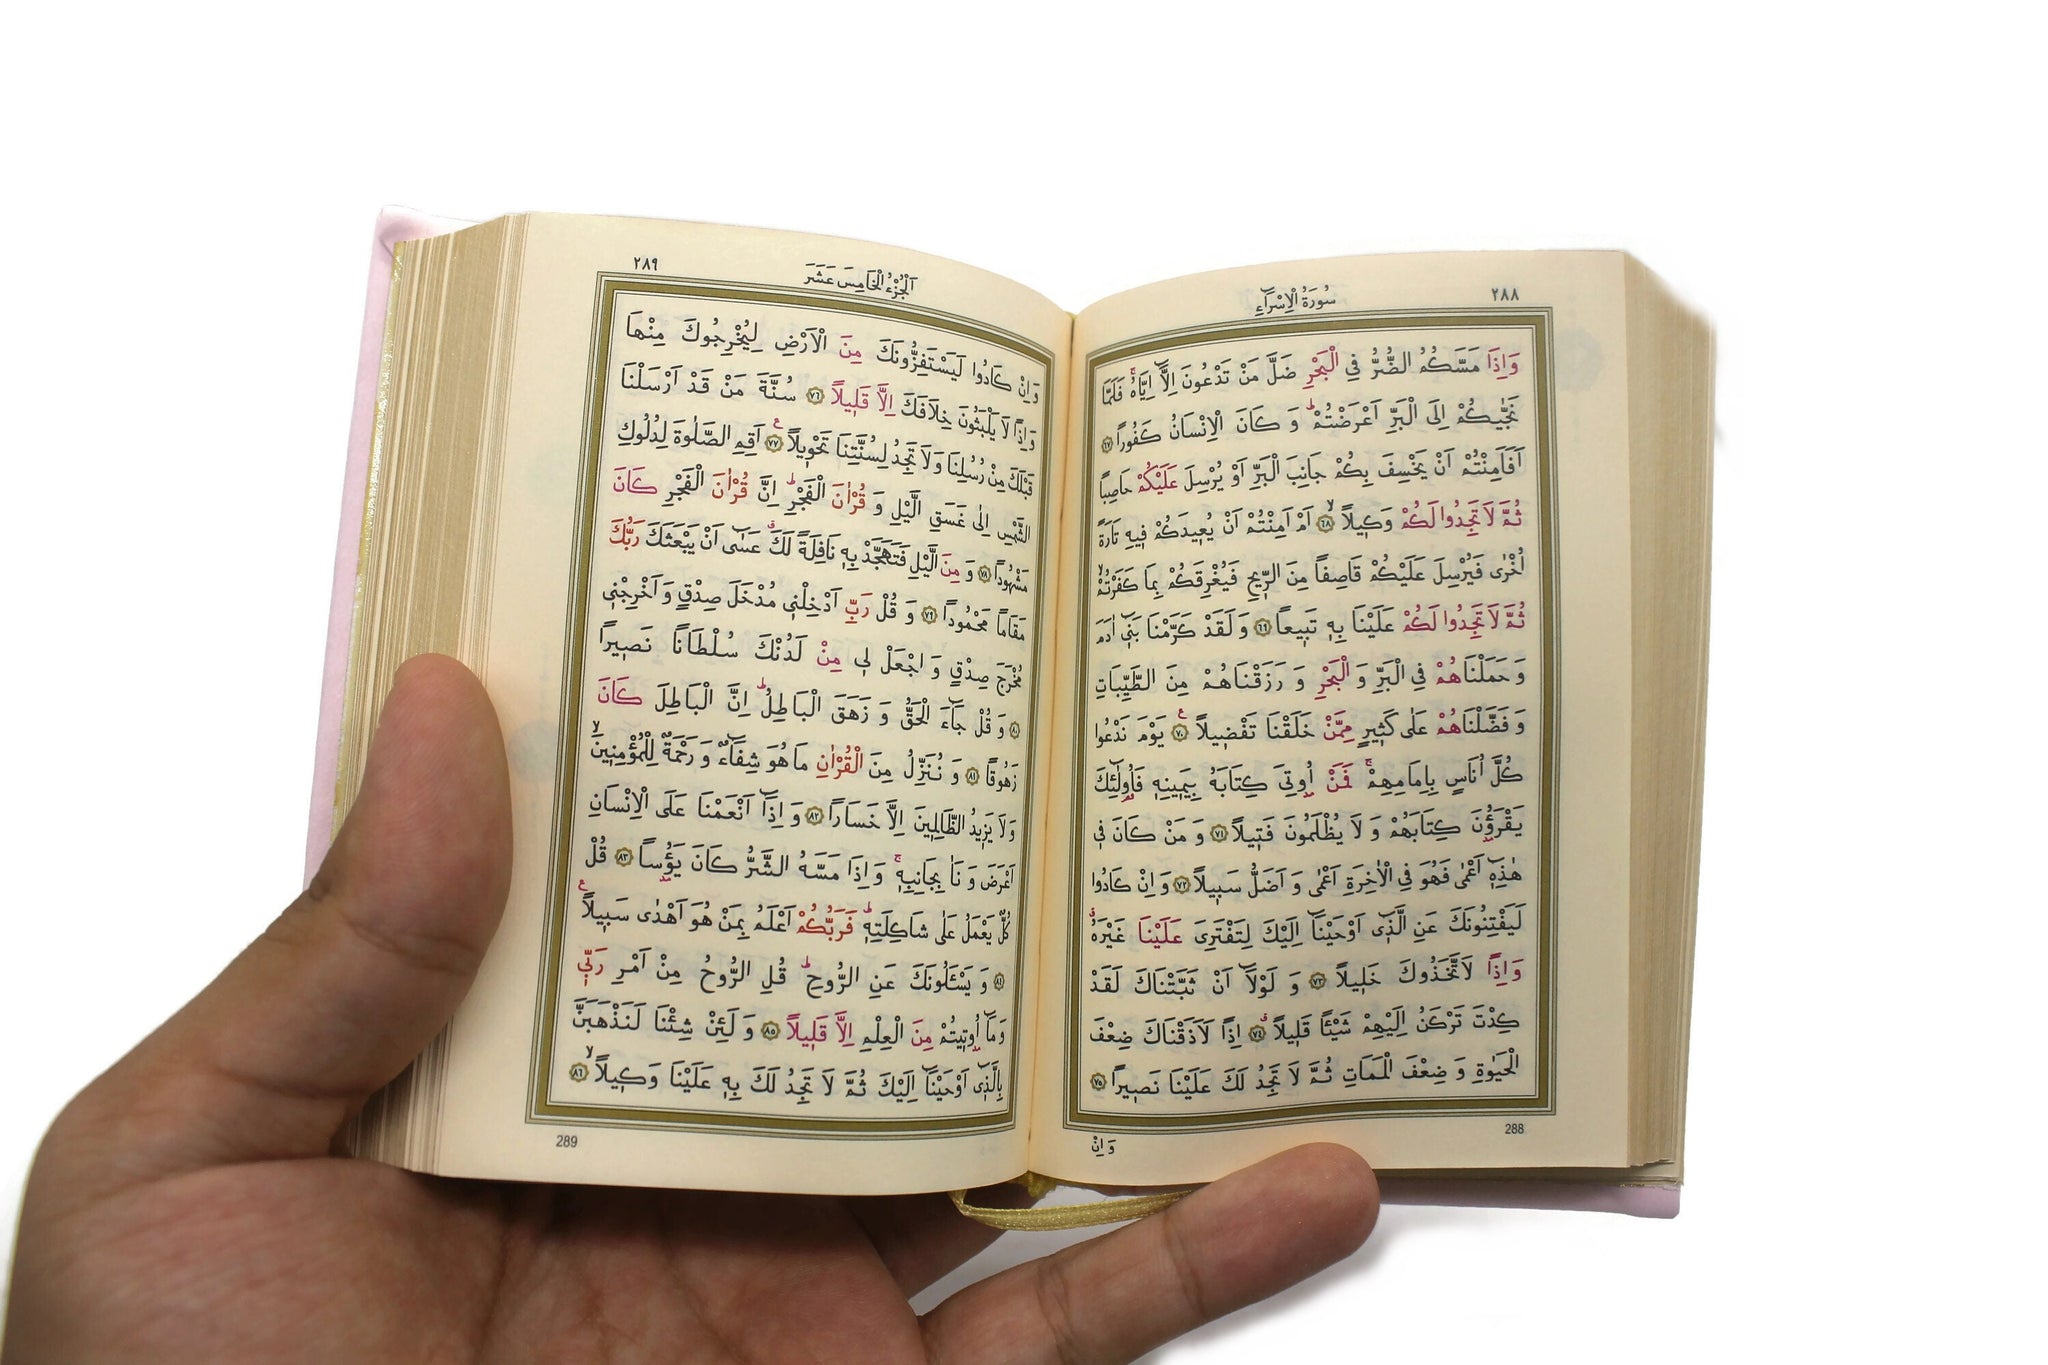 سُورَةُ الْاِسْرَاءِ
٢٨٨
وَاِذَا مَسَّكُمُ الضُّرُّ فِي الْبَحْرِ ضَلَّ مَنْ تَدْعُونَ اِلَّٓا اِيَّاهُۚ فَلَمَّا
نَجّٰيكُمْ اِلَى الْبَرِّ اَعْرَضْتُمْۜ وَكَانَ الْاِنْسَانُ كَفُورًا ٦٧
اَفَاَمِنْتُمْ اَنْ يَخْسِفَ بِكُمْ جَانِبَ الْبَرِّ اَوْ يُرْسِلَ عَلَيْكُمْ حَاصِبًا
ثُمَّ لَا تَجِدُوا لَكُمْ وَكِيلًاۙ ٦٨ اَمْ اَمِنْتُمْ اَنْ يُعِيدَكُمْ فِيهِ تَارَةً
اُخْرٰى فَيُرْسِلَ عَلَيْكُمْ قَاصِفًا مِنَ الرِّيحِ فَيُغْرِقَكُمْ بِمَا كَفَرْتُمْۙ
ثُمَّ لَا تَجِدُوا لَكُمْ عَلَيْنَا بِهٖ تَبِيعًا ٦٩ وَلَقَدْ كَرَّمْنَا بَنٖٓي اٰدَمَ
وَحَمَلْنَاهُمْ فِي الْبَرِّ وَالْبَحْرِ وَرَزَقْنَاهُمْ مِنَ الطَّيِّبَاتِ
وَفَضَّلْنَاهُمْ عَلٰى كَثٖيرٍ مِمَّنْ خَلَقْنَا تَفْضٖيلًا ٧٠ يَوْمَ نَدْعُوا
كُلَّ اُنَاسٍ بِاِمَامِهِمْۚ فَمَنْ اُو۫تِيَ كِتَابَهُ بِيَمٖينِهٖ فَاُو۬لٰٓئِكَ
يَقْرَؤُ۫نَ كِتَابَهُمْ وَلَا يُظْلَمُونَ فَتٖيلًا ٧١ وَمَنْ كَانَ فٖي
هٰذِهٖٓ اَعْمٰى فَهُوَ فِي الْاٰخِرَةِ اَعْمٰى وَاَضَلُّ سَبٖيلًا ٧٢ وَاِنْ كَادُوا
لَيَفْتِنُونَكَ عَنِ الَّذٖٓي اَوْحَيْنَٓا اِلَيْكَ لِتَفْتَرِيَ عَلَيْنَا غَيْرَهُۗ
وَاِذًا لَاتَّخَذُوكَ خَلٖيلًا ٧٣ وَلَوْلَٓا اَنْ ثَبَّتْنَاكَ لَقَدْ
كِدْتَ تَرْكَنُ اِلَيْهِمْ شَيْـًٔا قَلٖيلًاۗ ٧٤ اِذًا لَاَذَقْنَاكَ ضِعْفَ
الْحَيٰوةِ وَضِعْفَ الْمَمَاتِ ثُمَّ لَا تَجِدُ لَكَ عَلَيْنَا نَصٖيرًا ٧٥
288
وَاِنْ
اَلْجُزْءُ الْخَامِسَ عَشَرَ
٢٨٩
وَاِنْ كَادُوا لَيَسْتَفِزُّونَكَ مِنَ الْاَرْضِ لِيُخْرِجُوكَ مِنْهَا
وَاِذًا لَا يَلْبَثُونَ خِلَافَكَ اِلَّا قَلٖيلًا ٧٦ سُنَّةَ مَنْ قَدْ اَرْسَلْنَا
قَبْلَكَ مِنْ رُسُلِنَا وَلَا تَجِدُ لِسُنَّتِنَا تَحْوٖيلًا ٧٧ اَقِمِ الصَّلٰوةَ لِدُلُوكِ
الشَّمْسِ اِلٰى غَسَقِ الَّيْلِ وَقُرْاٰنَ الْفَجْرِۜ اِنَّ قُرْاٰنَ الْفَجْرِ كَانَ
مَشْهُودًا ٧٨ وَمِنَ الَّيْلِ فَتَهَجَّدْ بِهٖ نَافِلَةً لَكَۗ عَسٰٓى اَنْ يَبْعَثَكَ رَبُّكَ
مَقَامًا مَحْمُودًا ٧٩ وَقُلْ رَبِّ اَدْخِلْنٖي مُدْخَلَ صِدْقٍ وَاَخْرِجْنٖي
مُخْرَجَ صِدْقٍ وَاجْعَلْ لٖي مِنْ لَدُنْكَ سُلْطَانًا نَصٖيرًا
٨٠ وَقُلْ جَٓاءَ الْحَقُّ وَزَهَقَ الْبَاطِلُۜ اِنَّ الْبَاطِلَ كَانَ
زَهُوقًا ٨١ وَنُنَزِّلُ مِنَ الْقُرْاٰنِ مَا هُوَ شِفَٓاءٌ وَرَحْمَةٌ لِلْمُؤْمِنٖينَۙ
وَلَا يَزٖيدُ الظَّالِمٖينَ اِلَّا خَسَارًا ٨٢ وَاِذَٓا اَنْعَمْنَا عَلَى الْاِنْسَانِ
اَعْرَضَ وَنَاٰ بِجَانِبِهٖۚ وَاِذَا مَسَّهُ الشَّرُّ كَانَ يَؤُ۫سًا ٨٣ قُلْ
كُلٌّ يَعْمَلُ عَلٰى شَاكِلَتِهٖۜ فَرَبُّكُمْ اَعْلَمُ بِمَنْ هُوَ اَهْدٰى سَبٖيلًا
٨٤ وَيَسْـَٔلُونَكَ عَنِ الرُّوحِۜ قُلِ الرُّوحُ مِنْ اَمْرِ رَبّٖي
وَمَٓا اُو۫تٖيتُمْ مِنَ الْعِلْمِ اِلَّا قَلٖيلًا ٨٥ وَلَئِنْ شِئْنَا لَنَذْهَبَنَّ
بِالَّذٖٓي اَوْحَيْنَٓا اِلَيْكَ ثُمَّ لَا تَجِدُ لَكَ بِهٖ عَلَيْنَا وَكٖيلًاۙ ٨٦
289